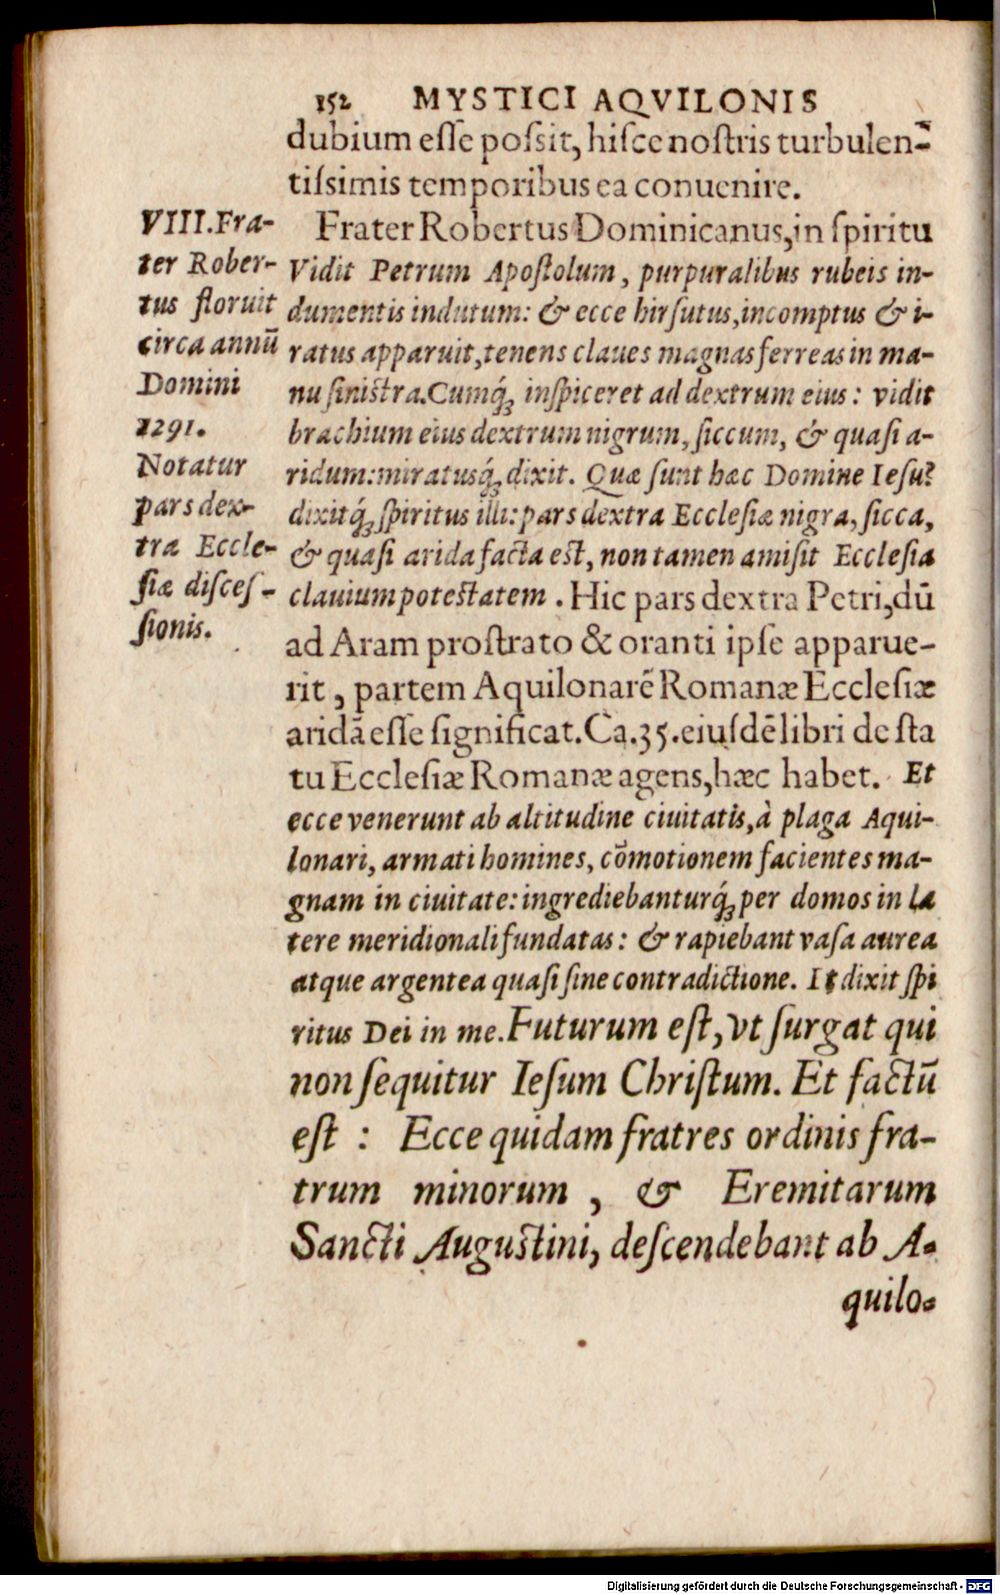 152 MYSTICI AQVILONIS
dubium eſſe poſsit, hiſce noſtris turbulen-
tiſsimis temporibus ea conuenire.
VIII. Fra-
ter Rober-
tus floruit
circa annū
Domini
1291.
Notatur
pars dex-
tra Eccle-
ſiæ diſceſ-
ſionis.
Frater Robertus Dominicanus, in ſpiritu
Vidit Petrum Apoſtolum, purpuralibus rubeis in-
dumentis indutum: & ecce hirſutus, incomptus & i-
ratus apparuit, tenens claues magnas ferreas in ma-
nu ſiniſtra. Cumq́ꝫ inſpiceret ad dextrum eius: vidit
brachium eius dextrum nigrum, ſiccum, & quaſi a-
ridum: miratusq́ꝫ dixit. Quæ ſunt hæc Domine Ieſu?
dixitq́ꝫ ſpiritus illi: pars dextra Eccleſiæ nigra, ſicca,
& quaſi arida facta eſt, non tamen amiſit Eccleſia
clauium poteſtatem. Hic pars dextra Petri, dū
ad Aram proſtrato & oranti ipſe apparue-
rit, partem Aquilonarē Romanæ Eccleſiæ
aridā eſſe significat. Ca. 35. eiuſdē libri de ſta
tu Eccleſiæ Romanæ agens, hæc habet. Et
ecce venerunt ab altitudine ciuitatis, à plaga Aqui-
lonari, armati homines, cōmotionem facientes ma-
gnam in ciuitate: ingrediebanturq́ꝫ per domos in la
tere meridionali fundatas: & rapiebant vaſa aurea
atque argentea quaſi ſine contradictione. Et dixit ſpi
ritus Dei in me. Futurum eſt, vt ſurgat qui
non ſequitur Ieſum Chriſtum. Et factū
eſt : Ecce quidam fratres ordinis fra-
trum minorum, & Eremitarum
Sancti Auguſtini, deſcendebant ab A-
quilo-
Digitalisierung gefördert durch die Deutsche Forschungsgemeinschaft - DFG